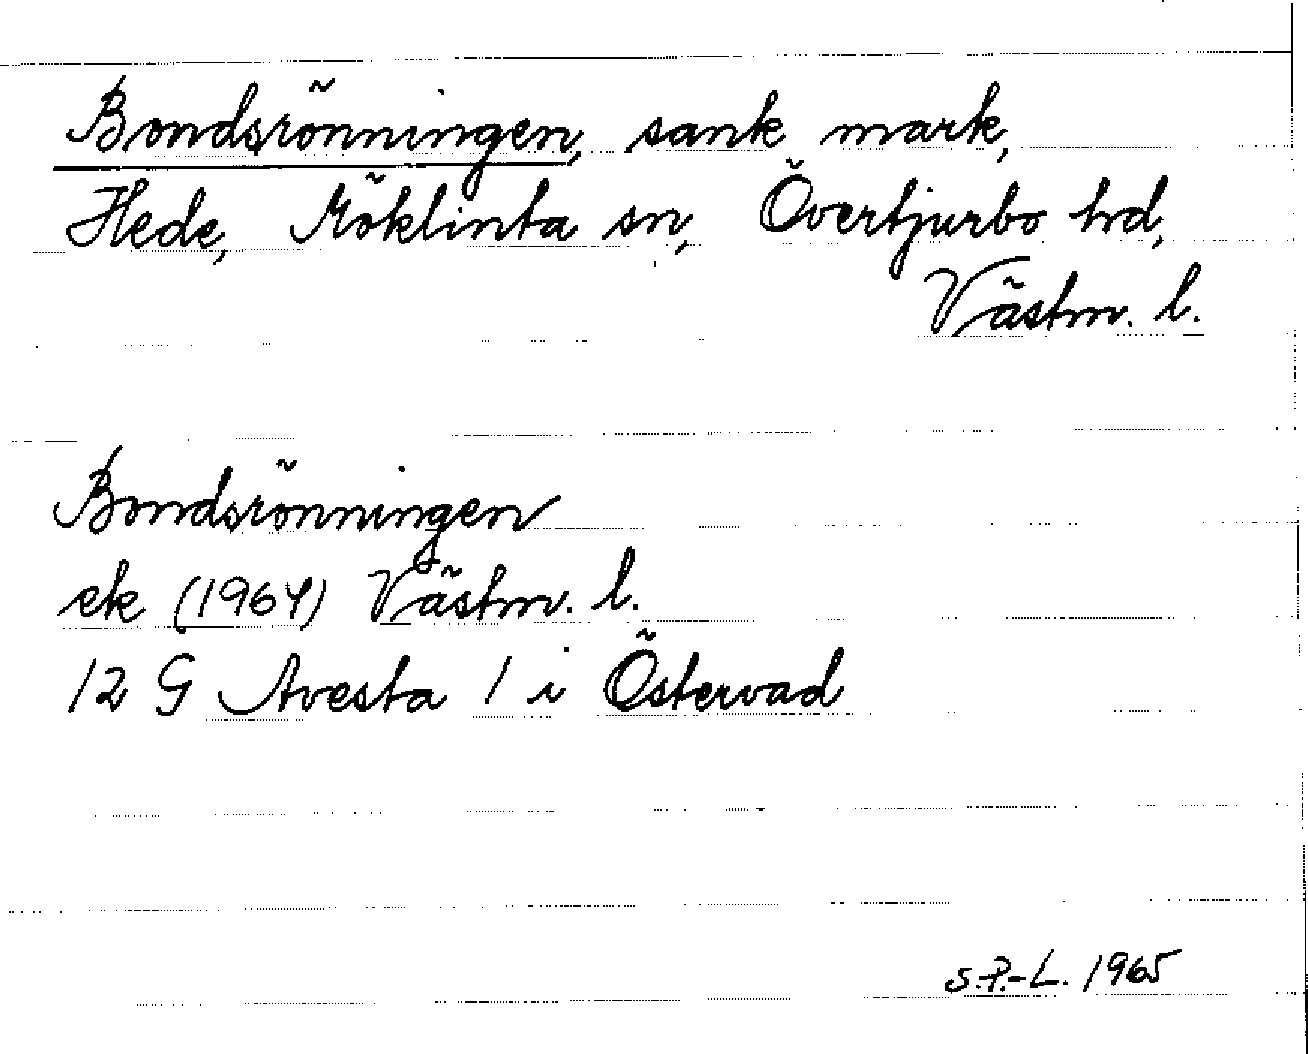 Bondsrönningen, sank mark,
Hede, Möklinta sn, Övertjurbo hd,
Västm. l.
Bondsrönningen
ek (1964) Västm. l.
12 G Avesta 1 i Östervad
S.P.-L. 1965